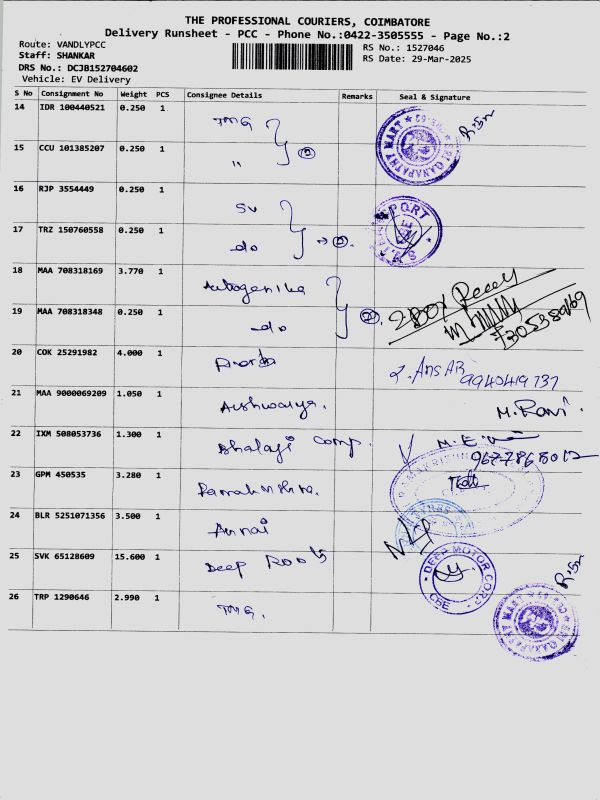 THE PROFESSIONAL COURIERS, COIMBATORE
Delivery Runsheet - PCC - Phone No.:0422-3505555 - Page No.:2
Route: VANDLYPCC
RS No.: 1527046
Staff: SHANKAR
RS Date: 29-Mar-2025
DRS No.: DCJB152704602
Vehicle: EV Delivery
S No Consignment No Weight PCS Consignee Details Remarks Seal & Signature
14 IDR 100440521 0.250 1 TMG
15 CCU 101385207 0.250 1 " ②
SRI GANAPATHY MART
16 RJP 3554449 0.250 1 SV
17 TRZ 150760558 0.250 1 do
18 MAA 708318169 3.770 1
19 MAA 708318348 0.250 1 do
2 BOX
20 COK 25291982 4.000 1
9940419737
21 MAA 9000069209 1.050 1 Aishwarya.
M. Ravi
22 IXM 508053736 1.300 1 Bhalaji Comp.
9677868012
23 GPM 450535 3.280 1
24 BLR 5251071356 3.500 1 Annai
25 SVK 65128609 15.600 1 Deep Roots
DEEP MOTOR CORP
CBE
26 TRP 1290646 2.990 1 TMG.
SRI GANAPATHY MART